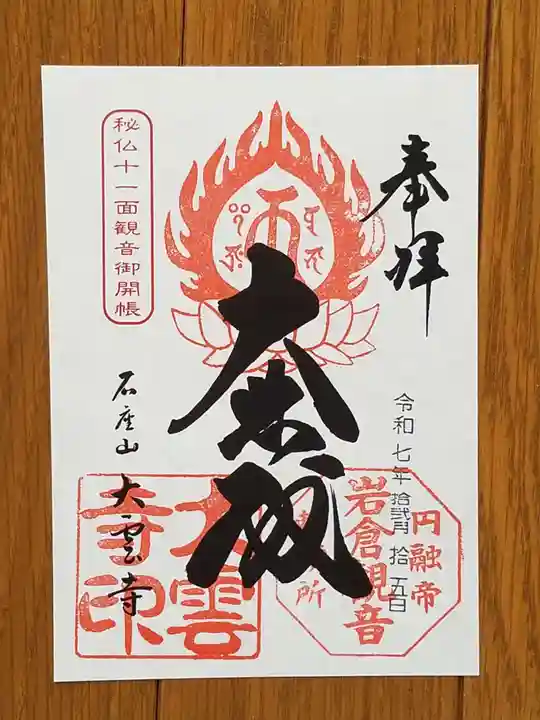 奉拝
令和七年拾弐月拾五日
円融帝
岩倉観音
所
大悲殿
秘仏十一面観音御開帳
石座山 大雲寺
大雲
寺印